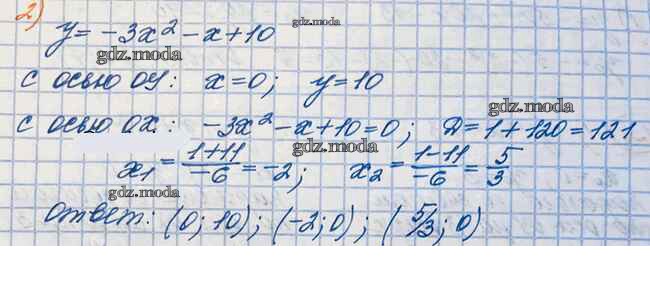 2)
y = -3x² - x + 10
gdz.moda
gdz.moda
с осью оу: x = 0; y = 10
gdz.moda
с осью ох: -3x² - x + 10 = 0; Д = 1 + 120 = 121
gdz.moda
x₁ = (1+11)/-6 = -2; x₂ = (1-11)/-6 = 5/3
gdz.moda
ответ: (0; 10); (-2; 0); (5/3; 0)